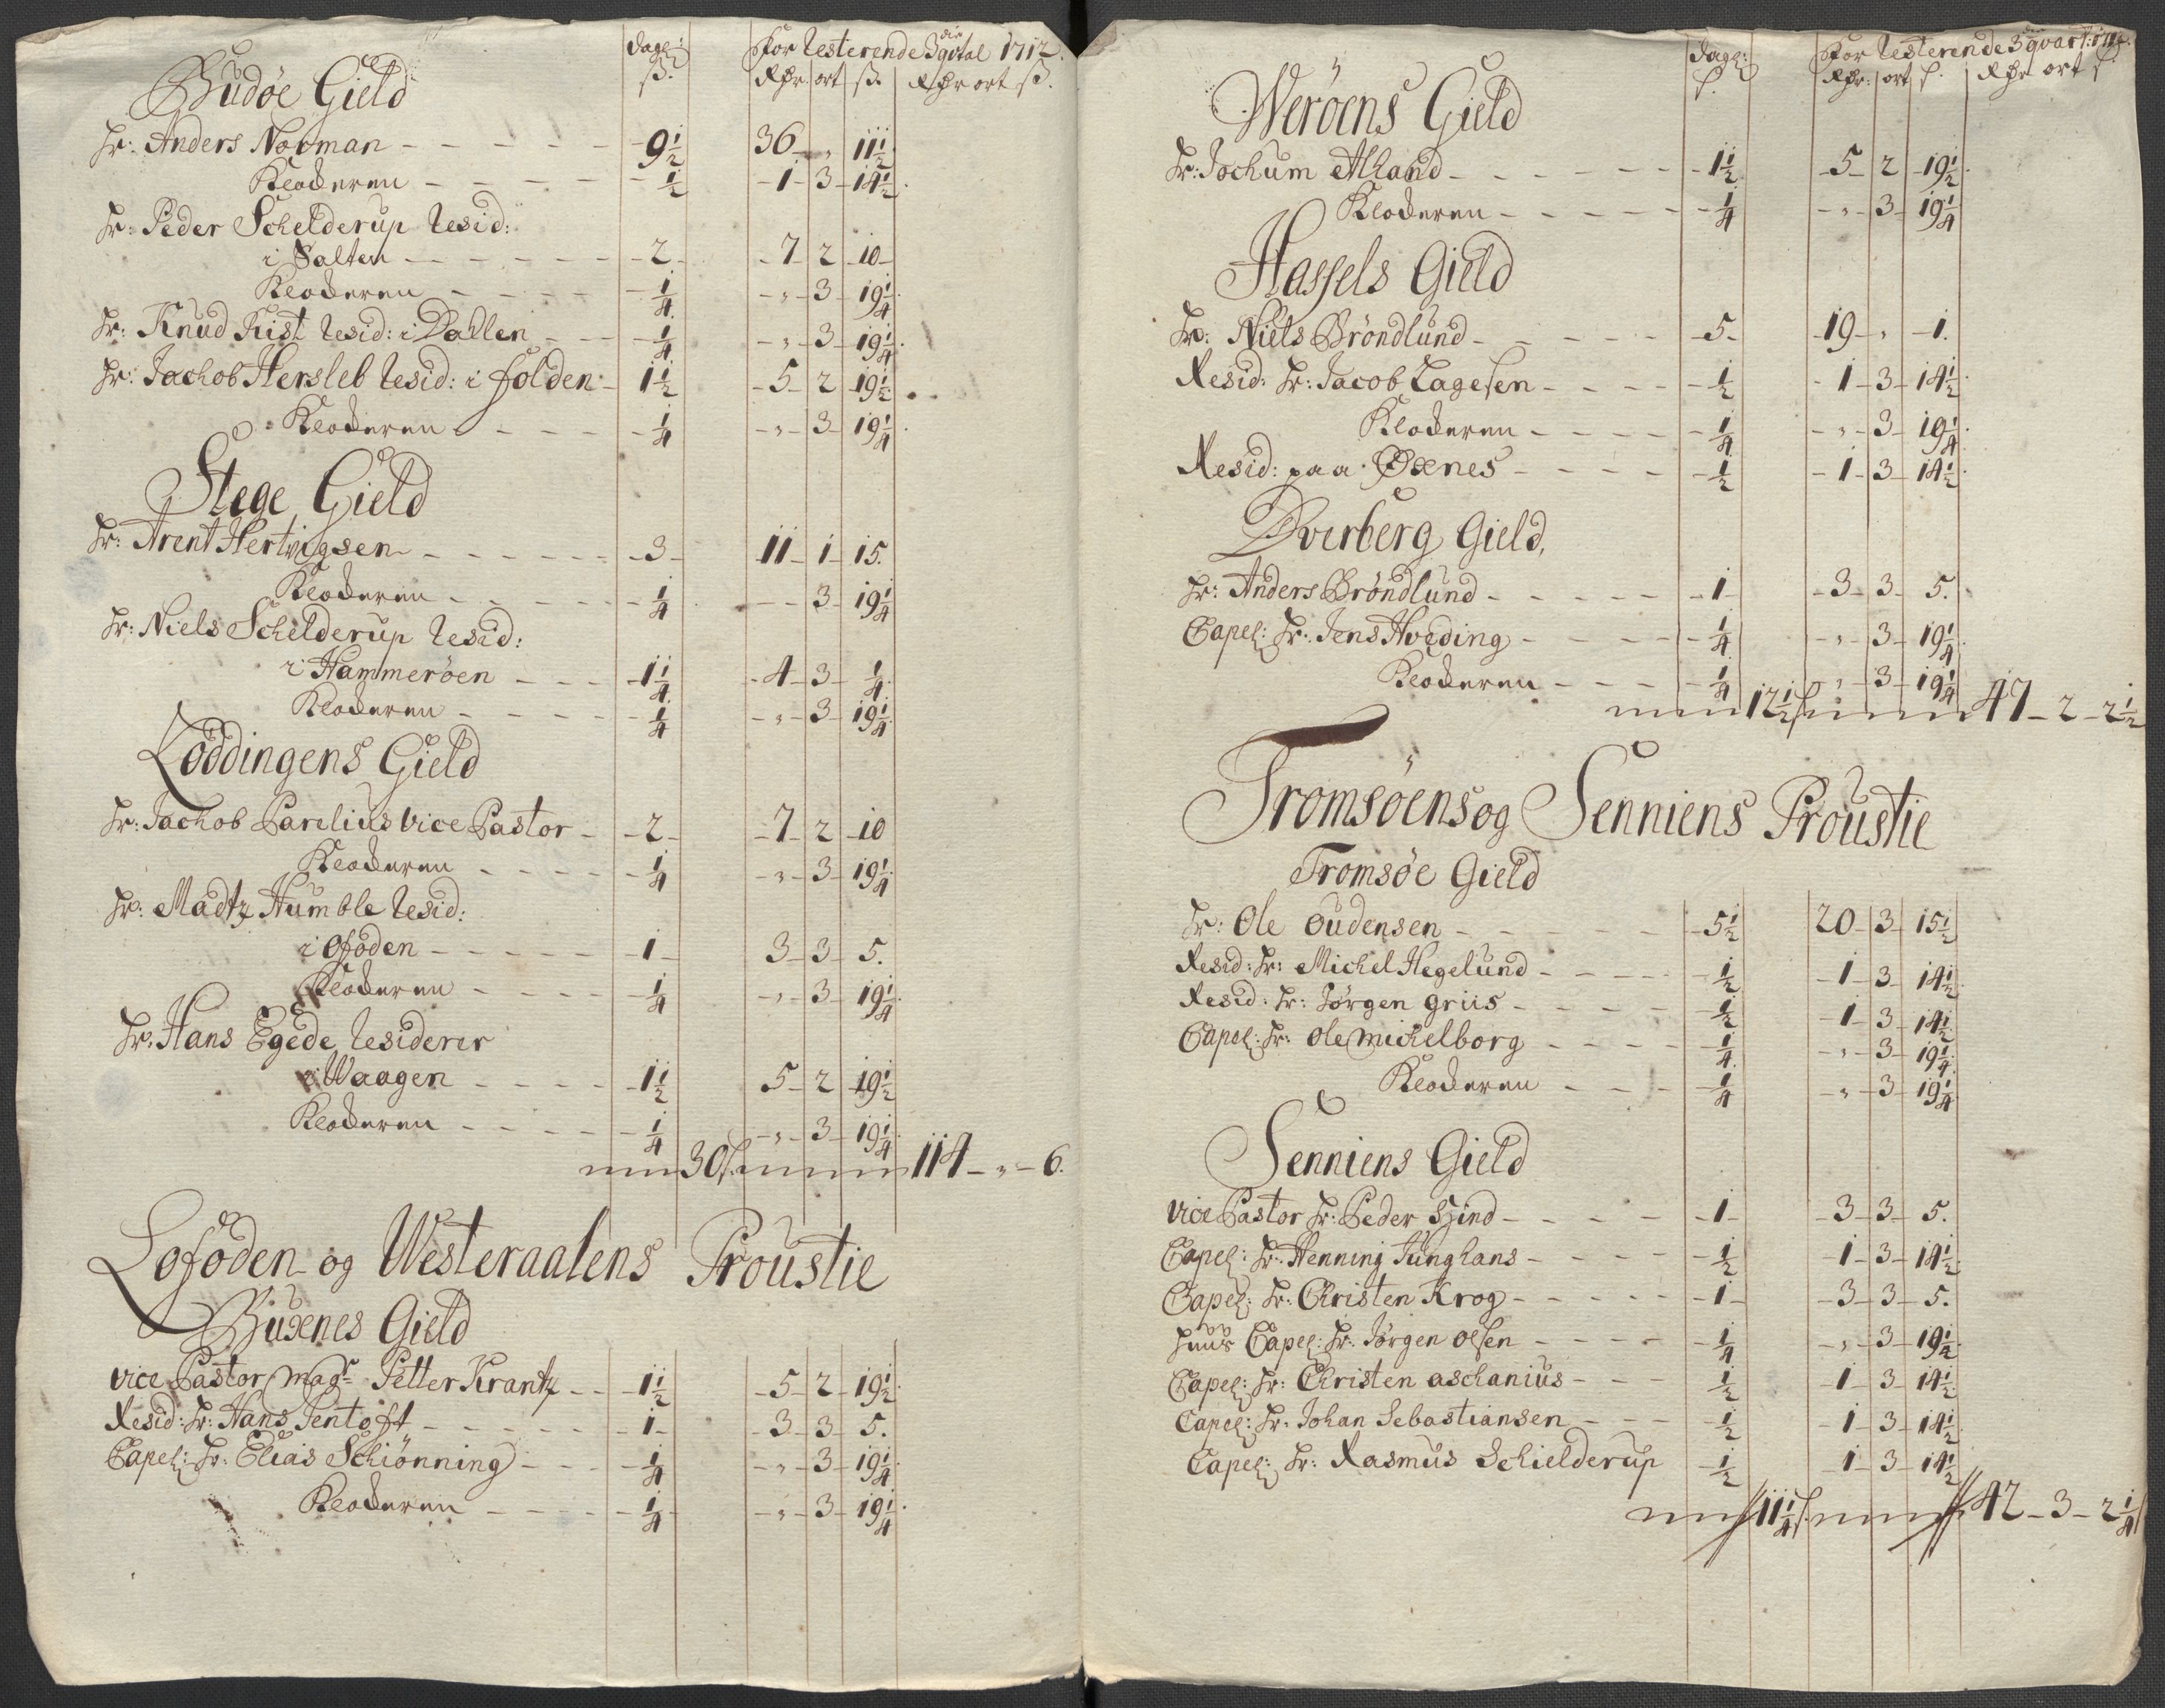 Dagl: For resterende 3 die qvtal 1712.
ß. Rdr ort ß. Rdr ort ß.
Budöe Gield
Hr: Anders Norman - 9½ 36 „ 11½
Klocheren - ½ 1 3 14½
Hr: Peder Schelderup Resid:
i Salten - 2 7 2 10
Klocheren - ¼ „ 3 19¼
Hr: Knud Rist Resid: i Dallen - ¼ „ 3 19¼
Hr: Jachob Hersleb Resid: i folden - 1½ 5 2 19½
Klocheren - ¼ „ 3 19¼
Stege Gield
Hr: Arent Hertvigsen - 3 11 1 15.
Klocheren - ¼ - 3 19¼
Hr: Niels Schelderup Resid:
i Hammeröen - 1¼ 4 3 ¼
Klocheren - ¼ „ 3 19¼
Löddingens Gield
Hr: Jachob Parelius Vice Pastor - 2 7 2 10
Klocheren - ¼ „ 3 19¼
Hr: Madtz Humble Resid:
i Ofoden - 1 3 3 5.
Klocheren - ¼ „ 3 19¼
Hr: Hans Egede Residerer
i Waagen - 1½ 5 2 19½
Klocheren - ¼ „ 3 19¼
30ß. 114 - „ - 6.
Lofoden og Westeraalens Proustie
Buxenes Gield
Vice Pastor Magr Petter Krantz - 1½ 5 2 19½
Resid: Hr: Hans Jentoft - 1 3 3 5.
Capel: Hr: Elias Schiönning - ¼ „ 3 19¼
Klocheren - ¼ „ 3 19¼
Dagl: For resterende 3 die qvart: 1712.
ß. Rdr: ort ß. Rdr ort ß
Weröens Gield
Hr: Jochum Alhand - 1½ 5 2 19½
Klocheren - ¼ „ 3 19¼
Hassels Gield
Hr: Niels Bröndlund - 5 19 „ 1.
Resid: Hr: Jacob Lagesen - ½ 1 3 14½
Klocheren - ¼ „ 3 19¼
Resid: paa Öxnes - ½ 1 3 14½
Dverberg Gield,
Hr: Anders Bröndlund - 1 3 3 5.
Capel: Hr: Jens Hveding - ¼ „ 3 19¼
Klocheren - ¼ „ 3 19¼
12½ß 47 - 2 - 2½
Tromsöens og Senniens Proustie
Tromsöe Gield
Hr: Ole Oudensen - 5½ 20 3 15½
Resid: Hr: Michel Hegelund - ½ 1 3 14½
Resid: Hr: Jörgen Griis - ½ 1 3 14½
Capel: Hr: Ole Michelborg - ¼ „ 3 19¼
Klocheren - ¼ „ 3 19¼
Senniens Gield
Vice Pastor Hr: Peder Hind - 1 3 3 5.
Capel: Hr: Henning Junghans - ½ 1 3 14½
Capel: Hr: Christen Krog - 1 3 3 5.
Huus Capel: Hr: Jörgen Olsen - ¼ „ 3 19½
Capel: Hr: Christen Aschanius - ½ 1 3 14½
Capel: Hr: Johan Sebastiansen - ½ 1 3 14½
Capel: Hr: Rasmus Schielderup ½ 1 3 14½
11¼ß. 42 - 3 - 2¼